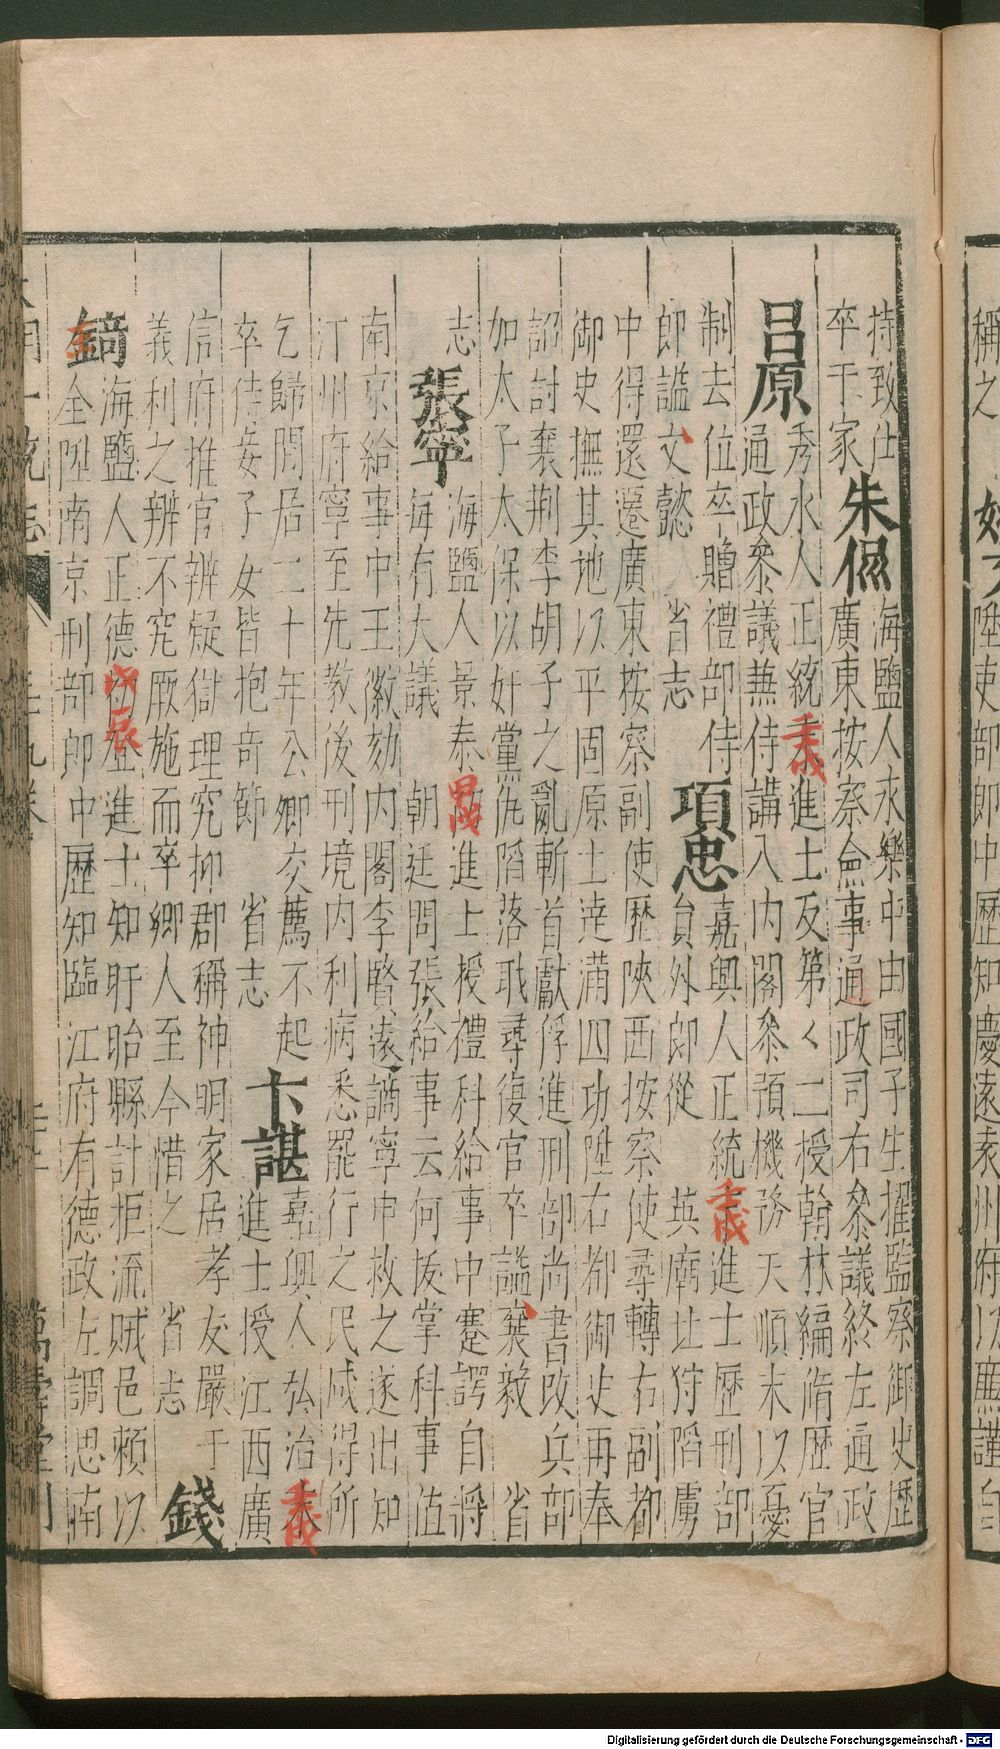 持致仕　海鹽人永樂中由國子生擢監察御史歷
卒于家朱㒞廣東按察僉事通政司右參議終左通政
呂原秀水人正統壬戌進士及第〱二授翰林編脩歷官
通政參議兼侍講入內閣參預機務天順末以憂
制去位卒贈禮部侍　項忠嘉興人正統壬戌進士歷刑部
郎謚文懿　省志　員外郎從　英廟北狩陷虜
中得還遷廣東按察副使歷陝西按察使尋轉右副都
御史撫其地以平固原土達滿四功陞右都御史再奉
詔討襄荆李胡子之亂斬首獻俘進刑部尚書改兵部
如太子太保以奸黨仇䧟落職尋復官卒謚襄毅　省
志　張寧海鹽人景泰甲戌進士授禮科給事中蹇諤自將
每有大議　朝廷問張給事云何拔掌科事值
南京給事中王徽劾內閣李賢遠謫寧申救之遂出知
汀州府寧至先教後刑境內利病悉罷行之民咸得所
乞歸閒居二十年公卿交薦不起　卞諶嘉興人弘治壬戌
卒侍妾子女皆抱奇節　省志　進士授江西廣
信府推官辨疑獄理究抑郡稱神明家居孝友嚴于
義利之辨不究厥施而卒鄉人至今惜之　省志　錢
鎬海鹽人正德戊辰進士知盱眙縣計拒流賊邑賴以
全陞南京刑部郎中歷知臨江府有德政左調思南
大明一統志
萬壽堂刊
稱之
陞吏部郎中歷知慶遠袁州府以廉謹自
Digitalisierung gefördert durch die Deutsche Forschungsgemeinschaft - DFG